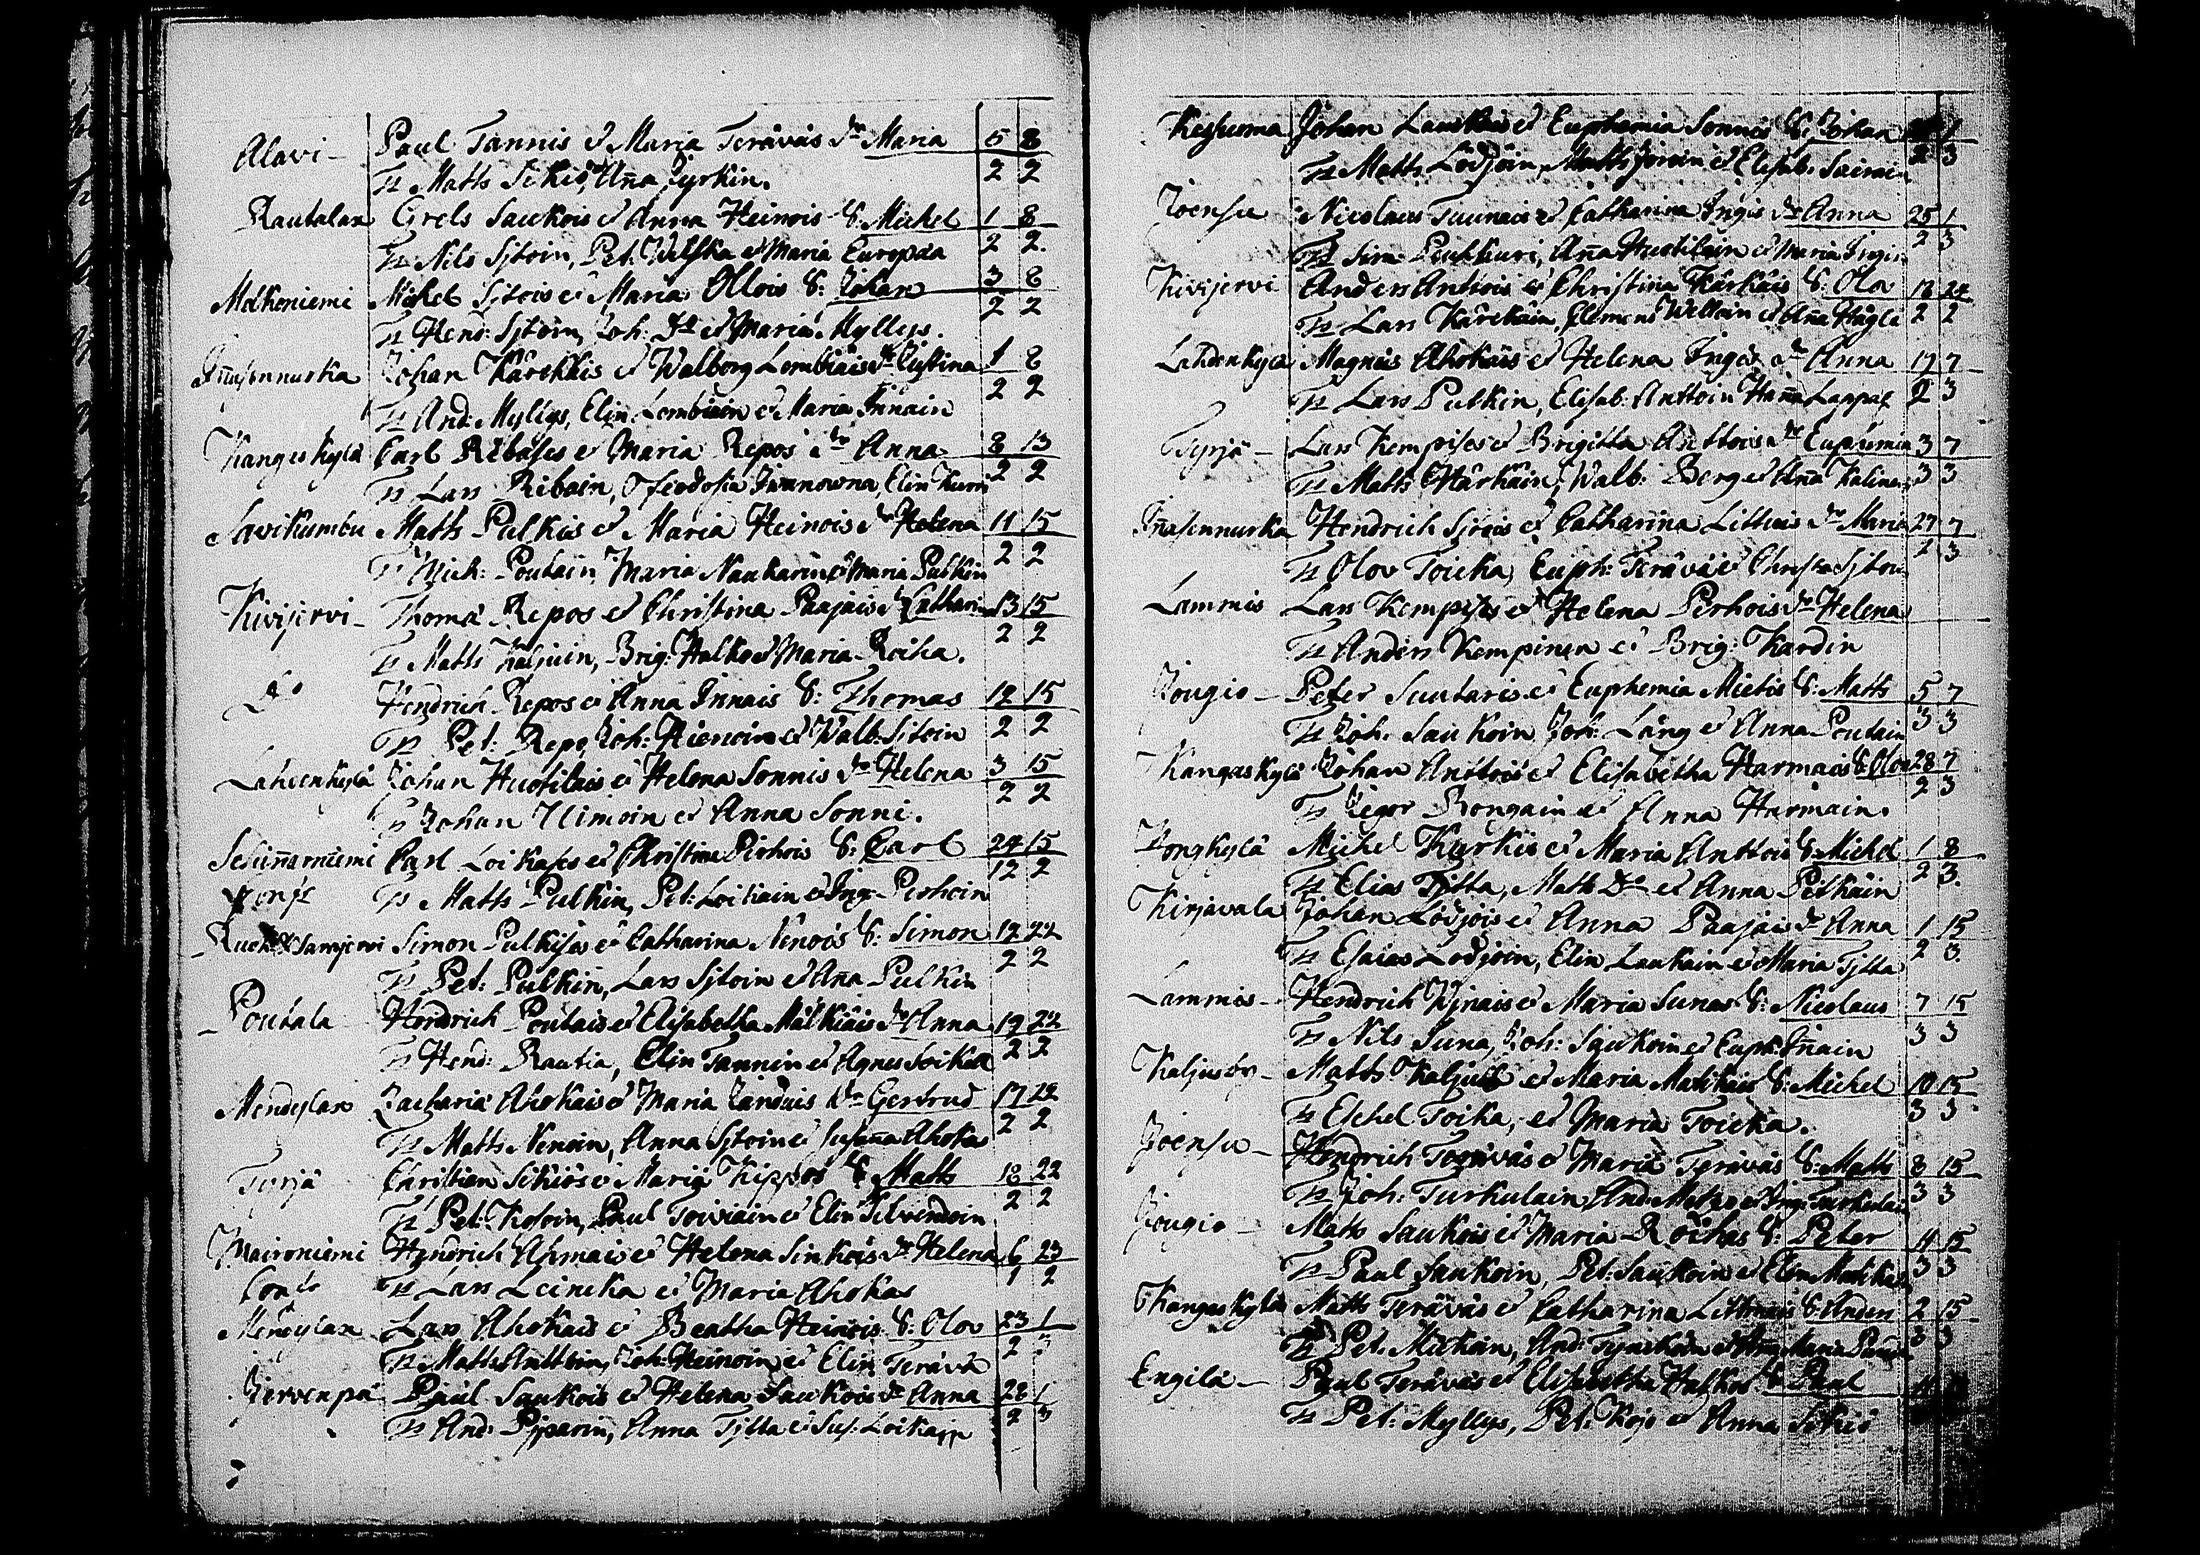 Alavi - Paul Tannis & Maria Teräväs Dr Maria 5 8
Tt Matts Sikiö, Aña Pyrkin. 2 2
Rautalax Grels Saukois & Anna Heinois S: Michel 1 8
Tt Nils Sjtoin, Pet: & Maria Europaa 2 2.
Mälkeniemi Michel Sjtois & Maria Ollois S: Johan 3 8
Tt Hend: Sjtoin, Joh: Do & Maria Myllys. 2 2
Johan Kärckkis & Walborg Lembiäis Dr Justina 1 8
Tt And: Myllys, Elin Lembiäin & Maria Innain 2 2
Kangeskylä Carl Ribases & Maria Repos Dr Anna 8 13
Tt Lars Ribain, Feodosia Iwanowna, Elin 2 2
Savikumbu Matts Pulkis & Maria Heinois Dr Helena 11 15
Tt Mich: Poutain, Maria Naukarin & Maria Pulkin 2 2
Kivijervi - Thoma Repos & Christina Paajais Dr Catharina 13 15
Tt Matts Kaljuin, Brig: Halko & Maria Roika. 2 2
Do Hendrich Repos & Anna Innais S: Thomas 12 15
Tt Pet: Repo, Joh: Hienoin & Walb: Sjtoin 2 2
Lahdenkylä Johan Huotilais & Helena Sonnis Dr Helena 3 15
Tt Johan Nimoin & Anna Sonni. 2 2
Carl Loikases & Christina Perhois S: Carl 24 15
Tt Matts Pulkin, Pet: Loikain & Ing: Perhoin 12 2
Simon Pulkises & Catharina Nenois S: Simon 12 22
Tt Pet: Pulkin, Lars Sjtoin & Aña Pulkin 2 2
Poutala Hendrich Poutais & Elisabetha Mälkiäis Dr Anna 19 22
Tt Hend: Rautia, Elin Tannin & Agnes Soikka 2 2
Mendeylax Zacharia Ahokais & Maria Dr Gertrud 17 22
Tt Matts Nenoin, Anna Sjtoin & Susaña Ahoka 2 2
Tyrjä Christian Sikiös & Maria Kippos S: Matts 18 22
Tt Pet: Kosoin, Paul Toiviain & Elin Silvendoin 2 2
Maironiemi Hendrich Ahmais & Helena Sinkois Dr Helena 6 23
Tt Lars Leincka & Maria Ahokas 1 2
Mendeylax Lars Ahokais & Beatha Heinois S: Olov 23 1
Tt Matts Anttoin, Joh: Heinoin & Elin Terävä 2 3
Jervenpä Paul Saukois & Helena Saukois Dr Anna 28 1
Tt And: Pijparin, Anna Tjtta & Sus: Loikain 2 3
Kesusma Johan Laukais & Euphemia Sonnis S: Johan 1
Tt Matts Lödjöin, Matts & Elisab: 2 3
Joensu Nicolaus Tuunais & Catharina Ingis Dr Anna 25 1
Tt Sim: Peukkuri, Aña Huotilain & Maria Ingin 2 3
Kivijervi Anders Anttois & Christina Kärkäis S: Olov 18 24
Tt Lars Kärckäin, Clemens & Aña 2 2
Lahdenkylä Magnus Ahokais & Helena Dr Anna 17 7
Tt Lars Pulkin, Elisab: Anttoin Haña Lappal 2 3
Tyrjä - Lars Kempises & Brigitta Anttois Dr Euphemia 3 7
Tt Matts Härkäin, Walb: Berg & Aña 3 3
Inasennurka Hendrich Sjtois & Catharina Littiais Dr Maria 27 7
Tt Olov Toicka, Euph: Terävä & Christa Sjtoin 2 3
Lammis Lars Kempises & Helena Perhois Dr Helena
Tt Anders Kempinen & Brig: Kardin
Jougio - Peter Suutaris & Euphemia Mietis S: Matts 5 7
Tt Joh: Saukoin Joh: Läng & Anna Poutain 3 3
Kangaskylä Johan Anttois & Elisabetha Harmais S: Olov 28 7
Tt Jegor Rongain & Anna Harmain. 2 3
Michel Kurkis & Maria Anttois S: Michel 1 8
Tt Elias Tjtta, Matts Do & Anna Pelkäin 2 3.
Kirjavala Johan Lödjöis & Anna Paajais Dr Anna 1 15
Tt Esaias Lödjöin, Elin Laukain & Maria Tjtta 2 3.
Lammis - Hendrich & Maria Sunas S: Nicolaus 7 15
Tt Nils Suna, Joh: Saukoin & Euph: Iñain 3 3
Matts Kaljuis & Maria Matikais S: Michel 10 15
Tt Eschel Toika, & Maria Toicka. 3 3
Joensu - Hendrich Teräväs & Maria Teräväs S: Matts 8 15
Tt Joh: Turkulain, And: & Ing: Turkulain 3 3
Jougio - Matts Saukois & Maria Roikas S: Peter 11 15
Tt Paul Saukoin, Pet: Saukoin & Elin Matikain 3 3
Kangaskylä Matts Teräväs & Catharina S: Anders 2 15
Tt Pet: Mickoin, And: 3 3
Engilä - Paul Teräväs & Elisabetha Halkos S: Paul
Tt Pet: Myllys, Pet: Kojo & Anna Sikiö